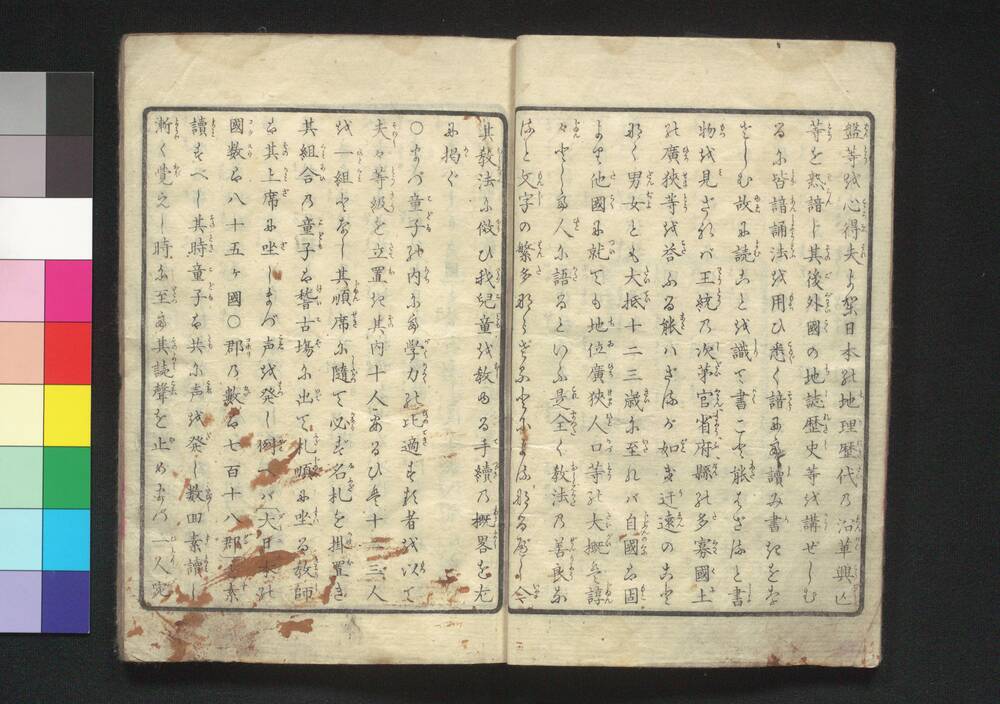 盤等を心得夫より架日本の地理歴代の沿革興亡
等を熟諳し其後外國の地誌歴史等を講ぜしむ
るに皆諳誦法を用ひ悉く諳にて讀み書きをな
さしむ故に読ことを識て書こと能はざると書
物を見ざれバ王統の次第官省府縣の多寡國土
の廣狭等を答ふる能ハざるが如き迂遠のこと
なく男女とも大抵十二三歳に至れバ自國は固
より他國に就ても地位廣狭人口等の大概を諄
々として人に語るといふ是全く教法の善良な
ると文字の繁多ならざるとによるなるべし今
其教法に倣ひ我兒童を教ゆる手續の概略を左
に掲ぐ
○まづ童子の内にて学力の比適する者を以て
夫々等級を立置き其内十人あるひは十二三人
を一組となし其順席に隨て必ず名札を掛置き
其組合の童子は稽古場に出て札順に坐る教師
は其上席に坐しまづ声を発し例へバ大日本の
國数は八十五ヶ國○郡の數は七百十八郡 素
讀すべし其時童子も共に声を発し数回素讀し
漸く覚えし時に至て其読聲を止めまづ一人宛